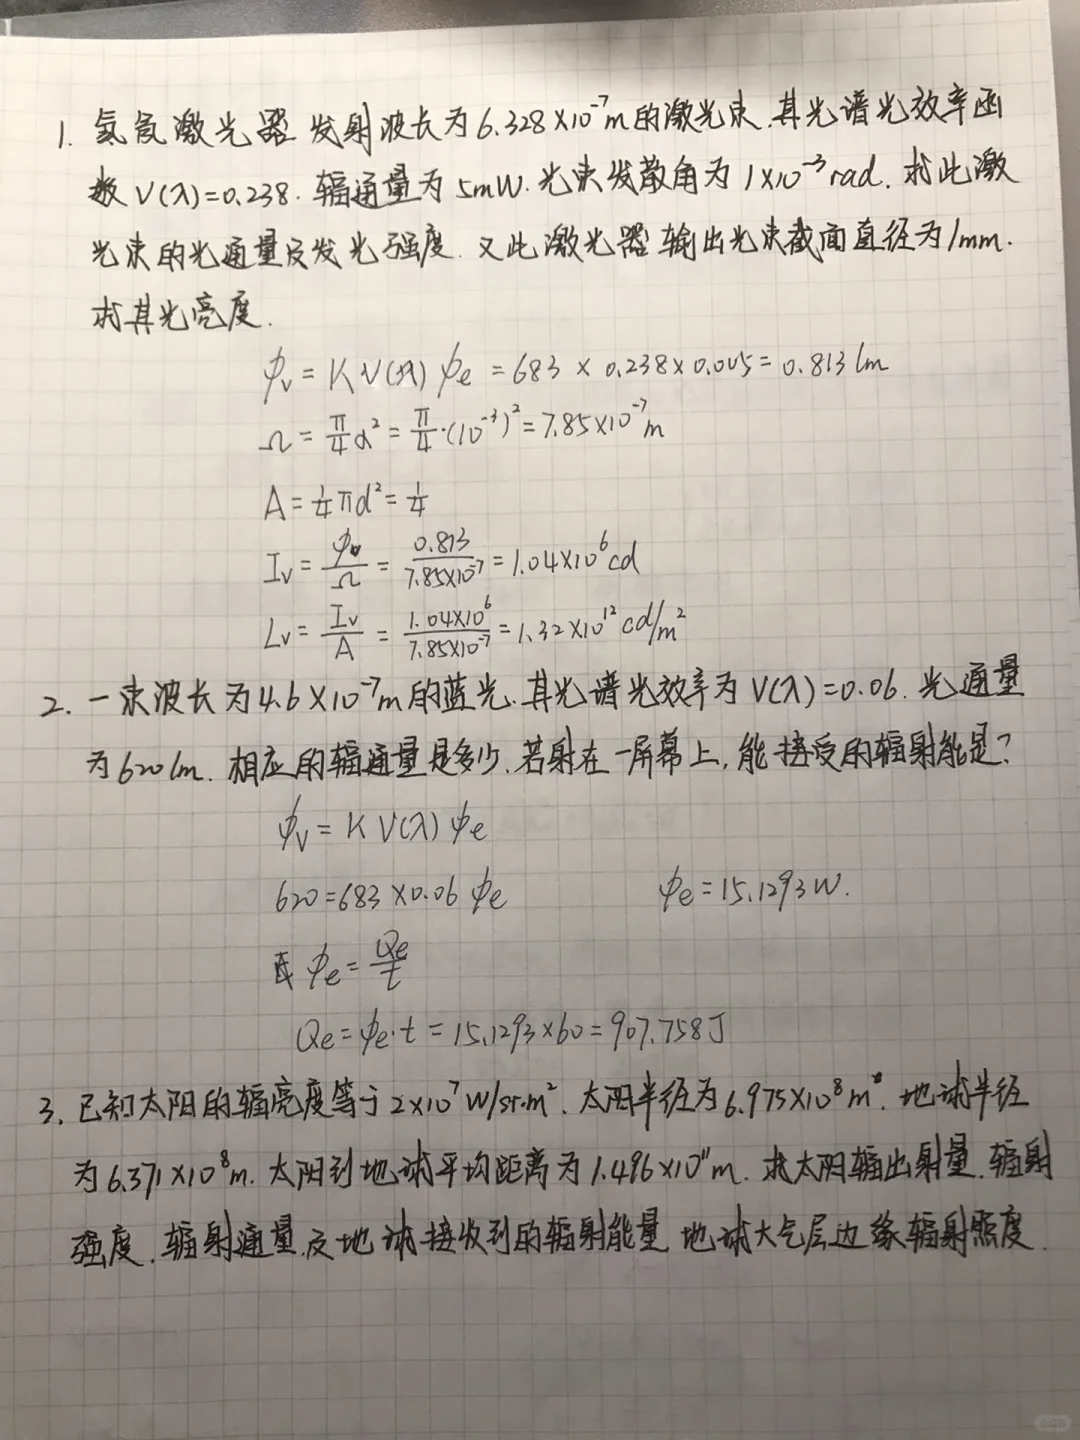 1. 氦氖激光器 发射波长为6.328×10⁻⁷m的激光束.其光谱光效率函
数V(λ)=0.238. 辐通量为5mW.光束发散角为1×10⁻³rad.求此激
光束的光通量及发光强度.又此激光器输出光束截面直径为1mm.
求其光亮度.
ϕv = K V(λ) ϕe = 683 × 0.238×0.005 = 0.813 lm
Ω = π/4 α² = π/4·(10⁻³)² = 7.85×10⁻⁷m
A = 1/4 πd² = 1/4
Iv = ϕv/Ω = 0.813/7.85×10⁻⁷ = 1.04×10⁶cd
Lv = Iv/A = 1.04×10⁶/7.85×10⁻⁷ = 1.32×10¹² cd/m²
2. 一束波长为4.6×10⁻⁷m的蓝光.其光谱光效率为V(λ)=0.06.光通量
为620lm.相应的辐通量是多少.若射在一屏幕上,能接受的辐射能是?
ϕv = K V(λ) ϕe
620=683×0.06 ϕe ϕe=15.1293W.
ϕe = Qe/t
Qe=ϕe·t = 15.1293×60 = 907.758J
3. 已知太阳的辐亮度等于2×10⁷W/sr·m².太阳半径为6.975×10⁸m.地球半径
为6.371×10⁸m.太阳到地球平均距离为1.496×10¹¹m.求太阳辐出射量.辐射
强度.辐射通量.及地球接收到的辐射能量.地球大气层边缘辐射照度.